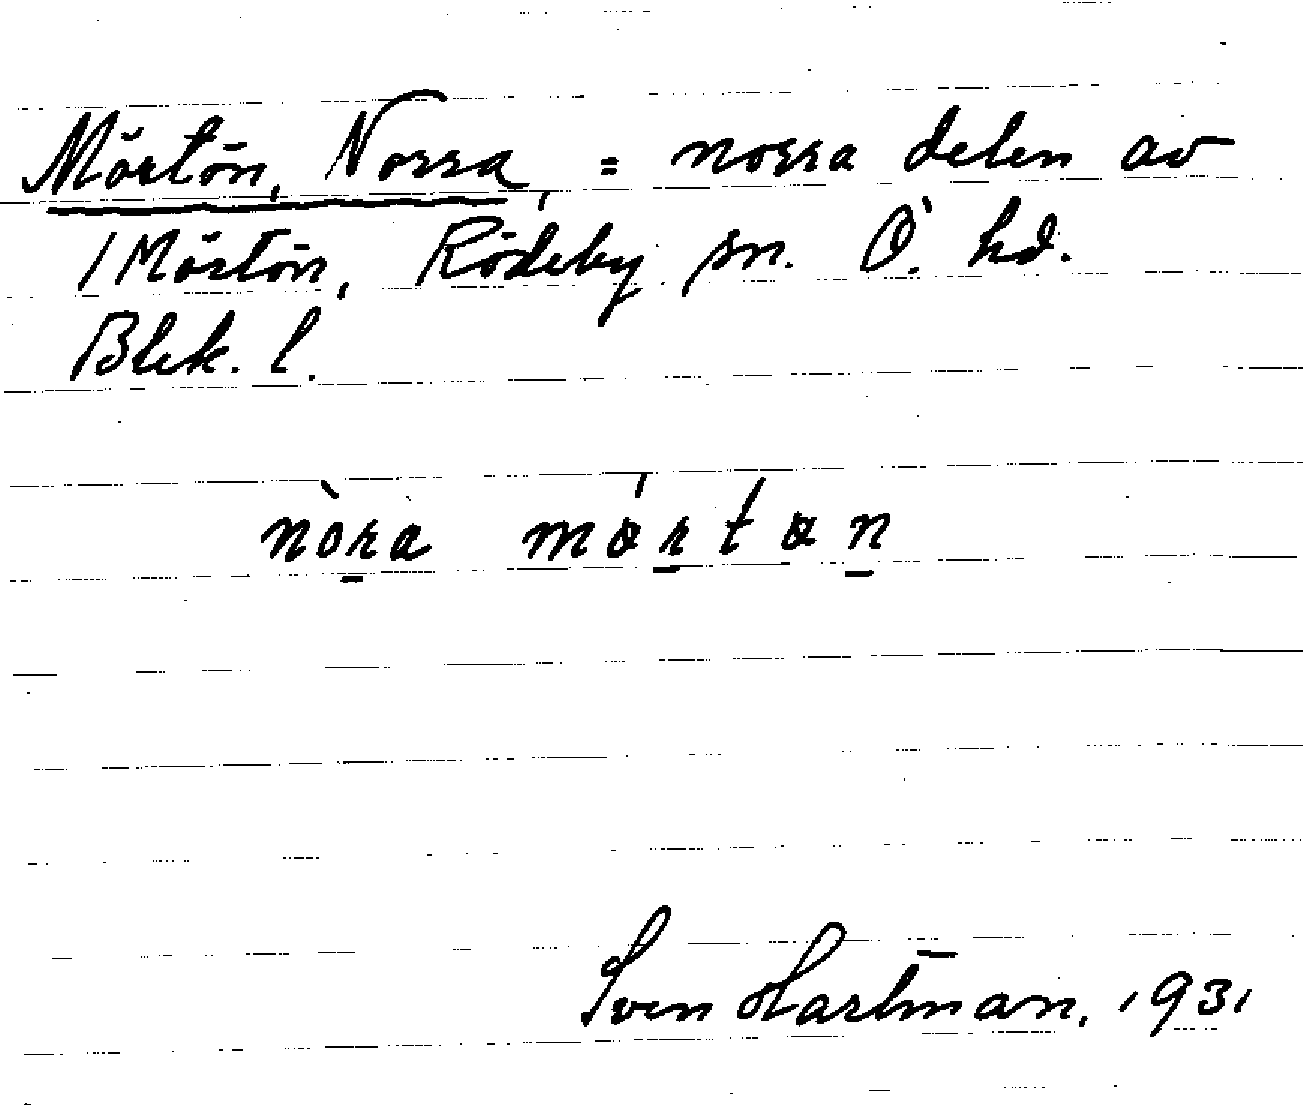 Mörtön, Norra, = norra delen av
Mörtön, Rödeby sn. Ö. hd.
Blek. l.
nòr̲a mǿr̲tøn̲
Sven Hartm̄an. 1931